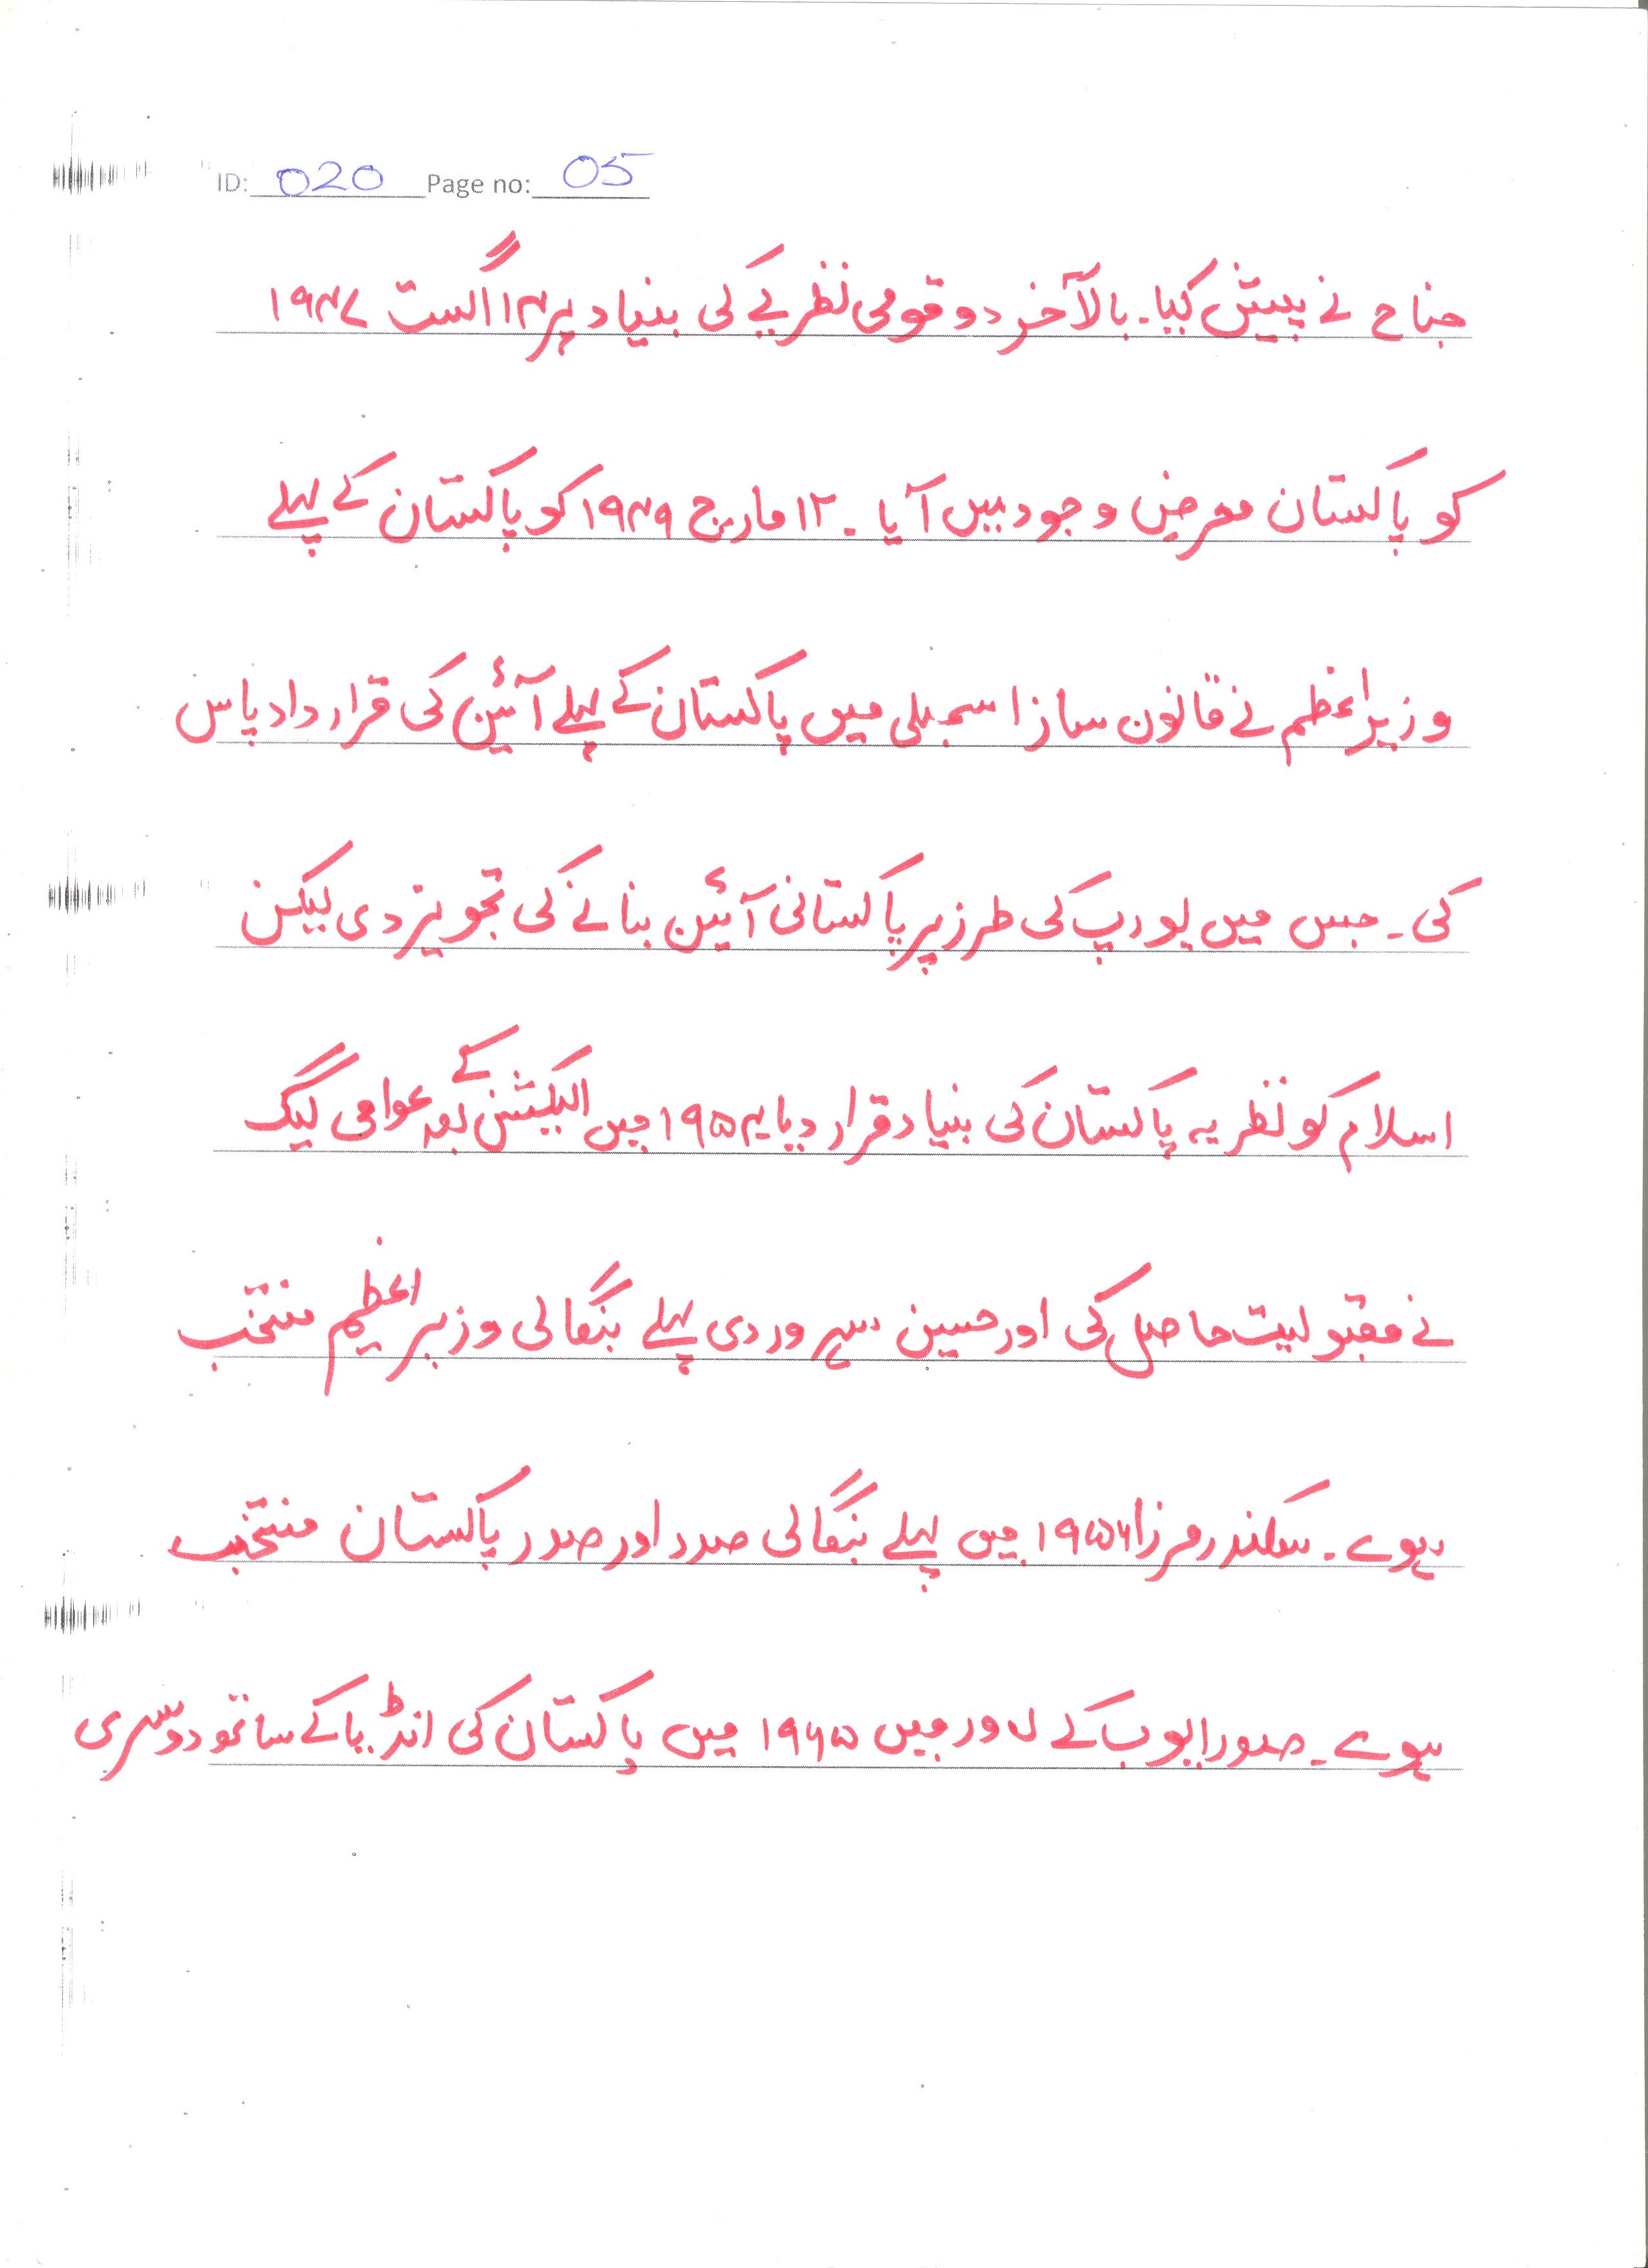 ID: 020 Page no: 05
جناح نے پیش کیا۔ بالآخر دو قومی نظریے کی بنیاد پر ۱۴ اگست ۱۹۴۷
کو پاکستان معرض وجود میں آیا ۔ ۱۲ مارچ ۱۹۴۹ کو پاکستان کے پہلے
وزیراعظم نے قانون ساز اسمبلی میں پاکستان کے پہلے آئین کی قرارداد پاس
کی۔ جس میں یورپ کی طرز پر پاکستانی آئین بنانے کی تجویز دی لیکن
اسلام کو نظریہ پاکستان کی بنیاد قرار دیا۔ ۱۹۵۴ میں الیکشن کے بعد عوامی لیگ
نے مقبولیت حاصل کی اور حسین سہروردی پہلے بنگالی وزیر اعظم منتخب
ہوے ۔ سکندر مرزا ۱۹۵۶ میں پہلے بنگالی صدر اور صدر پاکستان منتخب
ہوے ۔ صدر ایوب کے دور میں ۱۹۶۵ میں پاکستان کی انڈیا کے ساتھ دوسری